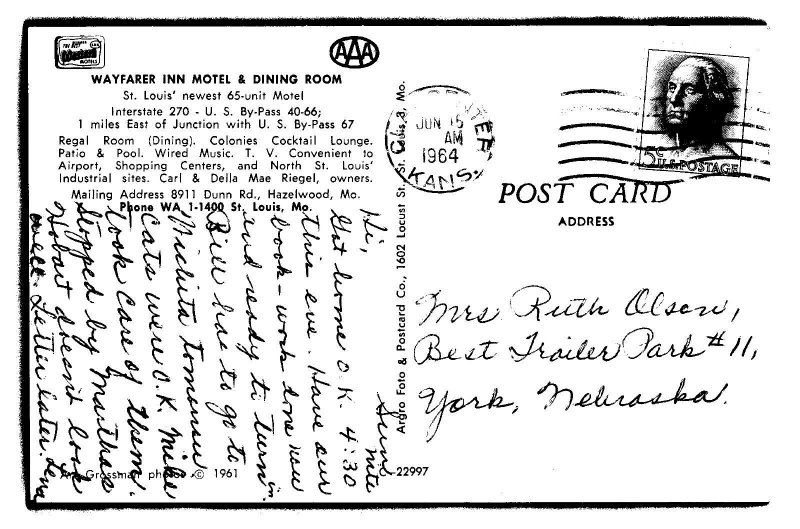 AAA
WAYFARER INN MOTEL & DINING ROOM
St. Louis' newest 65-unit Motel
Interstate 270 - U. S. By-Pass 40-66;
1 miles East of Junction with U. S. By-Pass 67
Regal Room (Dining). Colonies Cocktail Lounge.
Patio & Pool. Wired Music. T. V. Convenient to
Airport, Shopping Centers, and North St. Louis'
Industrial sites. Carl & Della Mae Riegel, owners.
Mailing Address 8911 Dunn Rd., Hazelwood, Mo.
Phone WA 1-1400 St. Louis, Mo.
Sun. nite
Hi,
Got home O.K. 4:30
this eve. Have our
book-work done now
and ready to turn in.
Bill has to go to
Wichita tomorrow
Cats were O.K. Mike
took care of them.
Stopped by Martha's
Hobart doesn't look
well. Letter later. Lena
Grossman photo © 1961
Argro Foto & Postcard Co., 1602 Locust St., St. Louis 3, Mo.
JUN 15
AM
1964
KANS.
5c U.S. POSTAGE
POST CARD
ADDRESS
Mrs Ruth Olson,
Best Trailer Park #11,
York, Nebraska.
C-22997